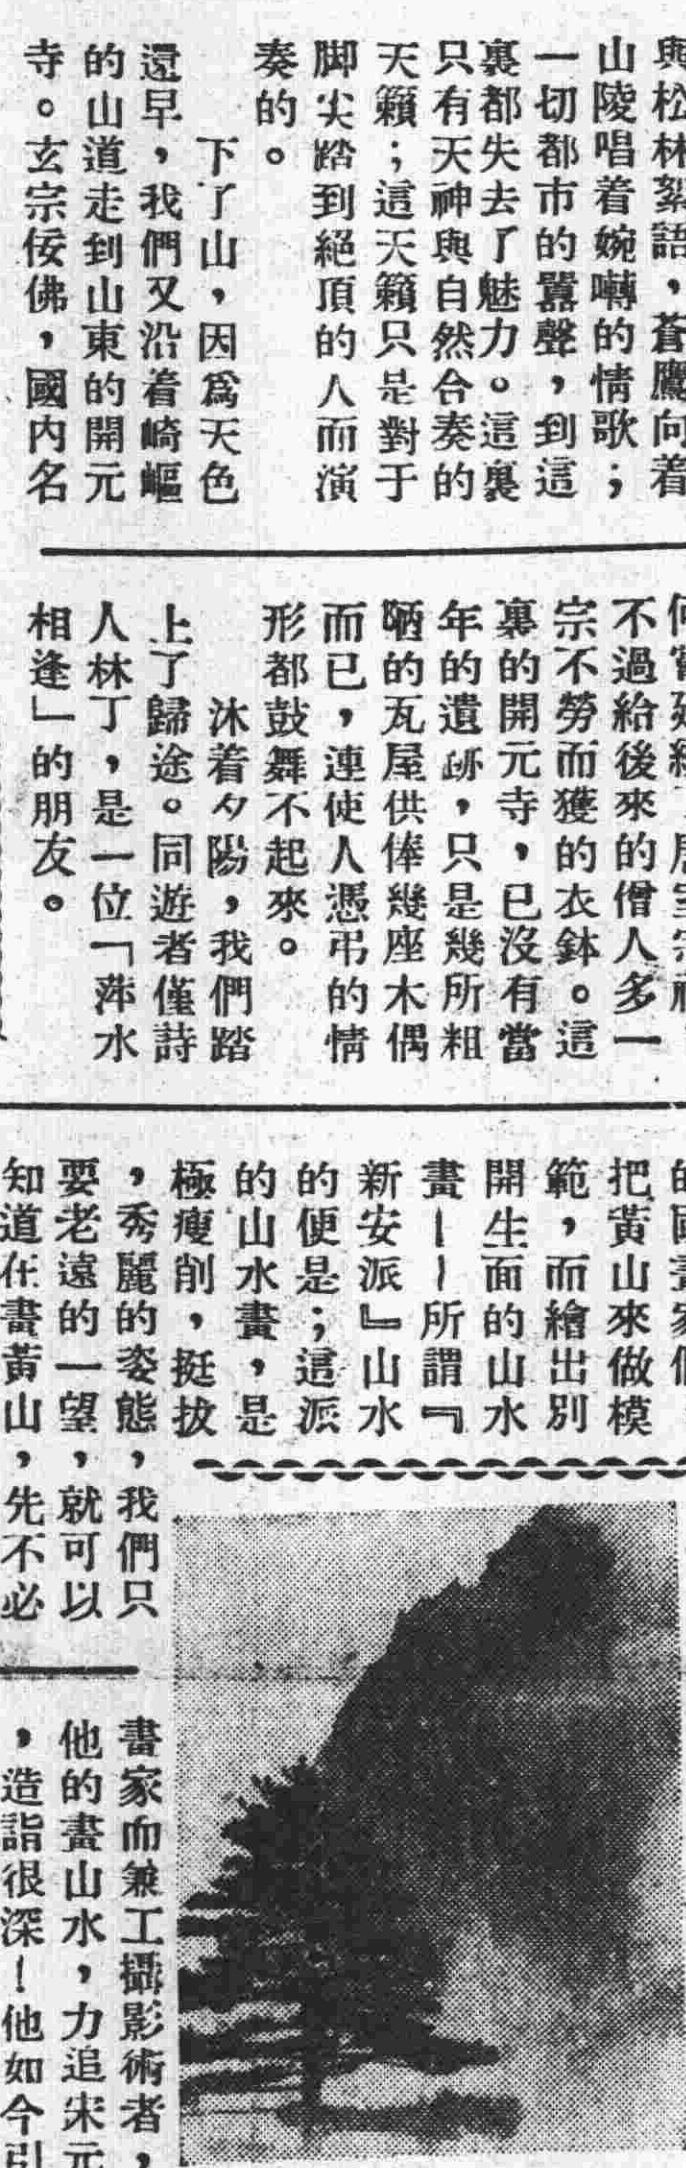 與松林絮語，蒼鷹向着
山陵唱着婉囀的情歌；
一切都市的囂聲，到這
裏都失去了魅力。這裏
只有天神與自然合奏的
天籟；這天籟只是對于
脚尖踏到絕頂的人而演
奏的。
下了山，因爲天色
還早，我們又沿着崎嶇
的山道走到山東的開元
寺。玄宗佞佛，國內名
不過給後來的僧人多一
宗不勞而獲的衣鉢。這
裏的開元寺，已沒有當
年的遺跡，只是幾所粗
陋的瓦屋供俸幾座木偶
而已，連使人憑弔的情
形都鼓舞不起來。
沐着夕陽，我們踏
上了歸途。同遊者僅詩
人林丁，是一位「萍水
相逢」的朋友。
把黃山來做模
範，而繪出別
開生面的山水
畫——所謂『
新安派』山水
的便是；這派
的山水畫，是
極瘦削，挺拔
，秀麗的姿態，我們只
要老遠的一望，就可以
知道在畫黃山，先不必
畫家而兼工攝影術者，
他的畫山水，力追宋元
，造詣很深！他如今引